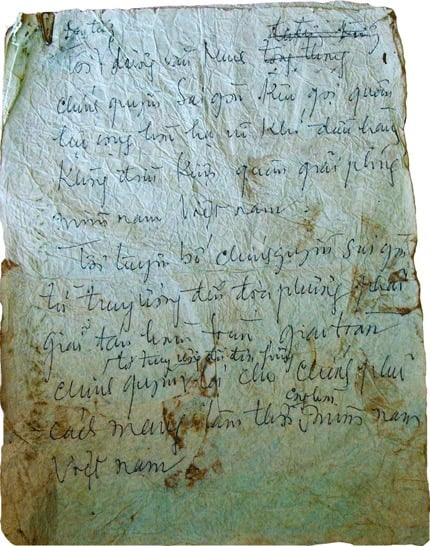 Đại tướng
Tôi dương văn Minh tổng thống
chính quyền Sài gòn kêu gọi quân
lực cộng hòa hạ vũ khí đầu hàng
không điều kiện quân giải phóng
miền nam Việt nam.
Tôi tuyên bố chính quyền Sài gòn
từ trung ương đến địa phương phải
giải tán hoàn toàn giao toàn
từ trung ương đến địa phương
chính quyền lại cho chính phủ
cách mạng lâm thời miền nam
Việt nam